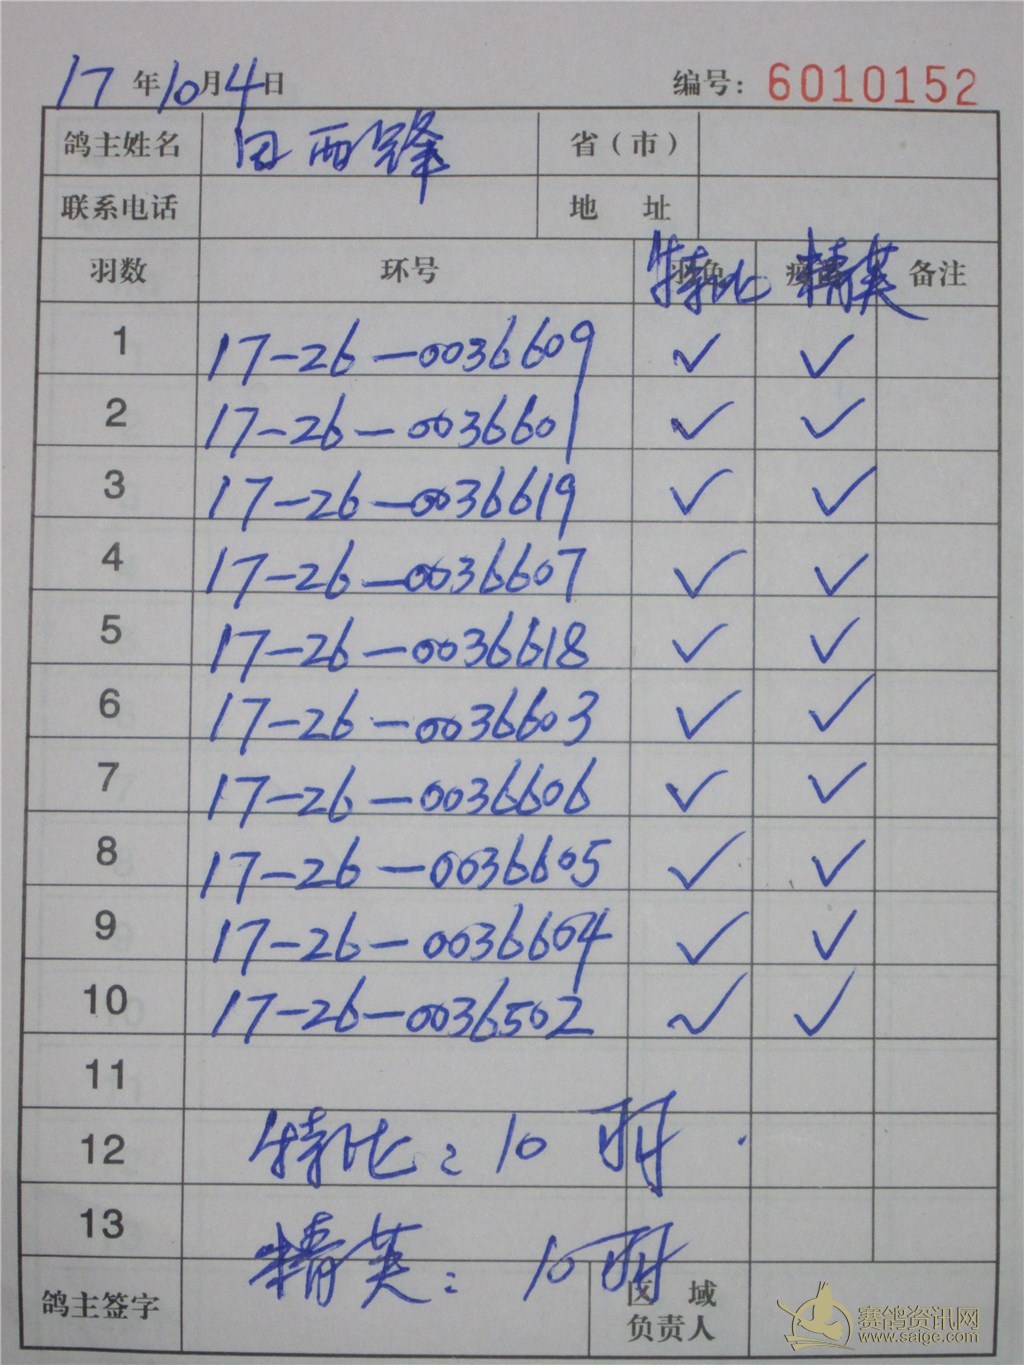 17年10月4日 编号: 6010152
鸽主姓名 田西锋 省（市）
联系电话 地 址
羽数 环号 特比 精英 备注
1 17-26-0036609 ✓ ✓
2 17-26-0036601 ✓ ✓
3 17-26-0036619 ✓ ✓
4 17-26-0036607 ✓ ✓
5 17-26-0036618 ✓ ✓
6 17-26-0036603 ✓ ✓
7 17-26-0036606 ✓ ✓
8 17-26-0036605 ✓ ✓
9 17-26-0036604 ✓ ✓
10 17-26-0036502 ✓ ✓
11
12 特比: 10 羽
13
精英: 10羽
鸽主签字 区 域
负责人
赛鸽资讯网
www.saige.com